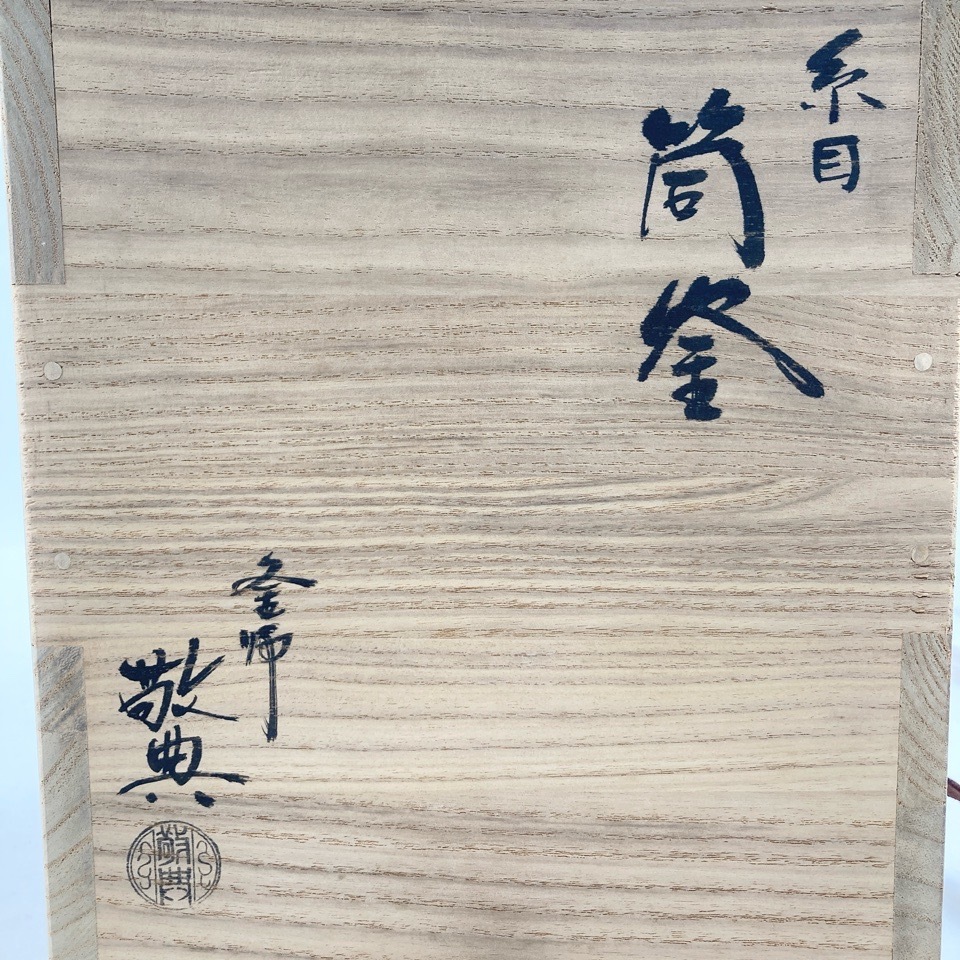 糸目
筒釜
釜師
敬典
敬典